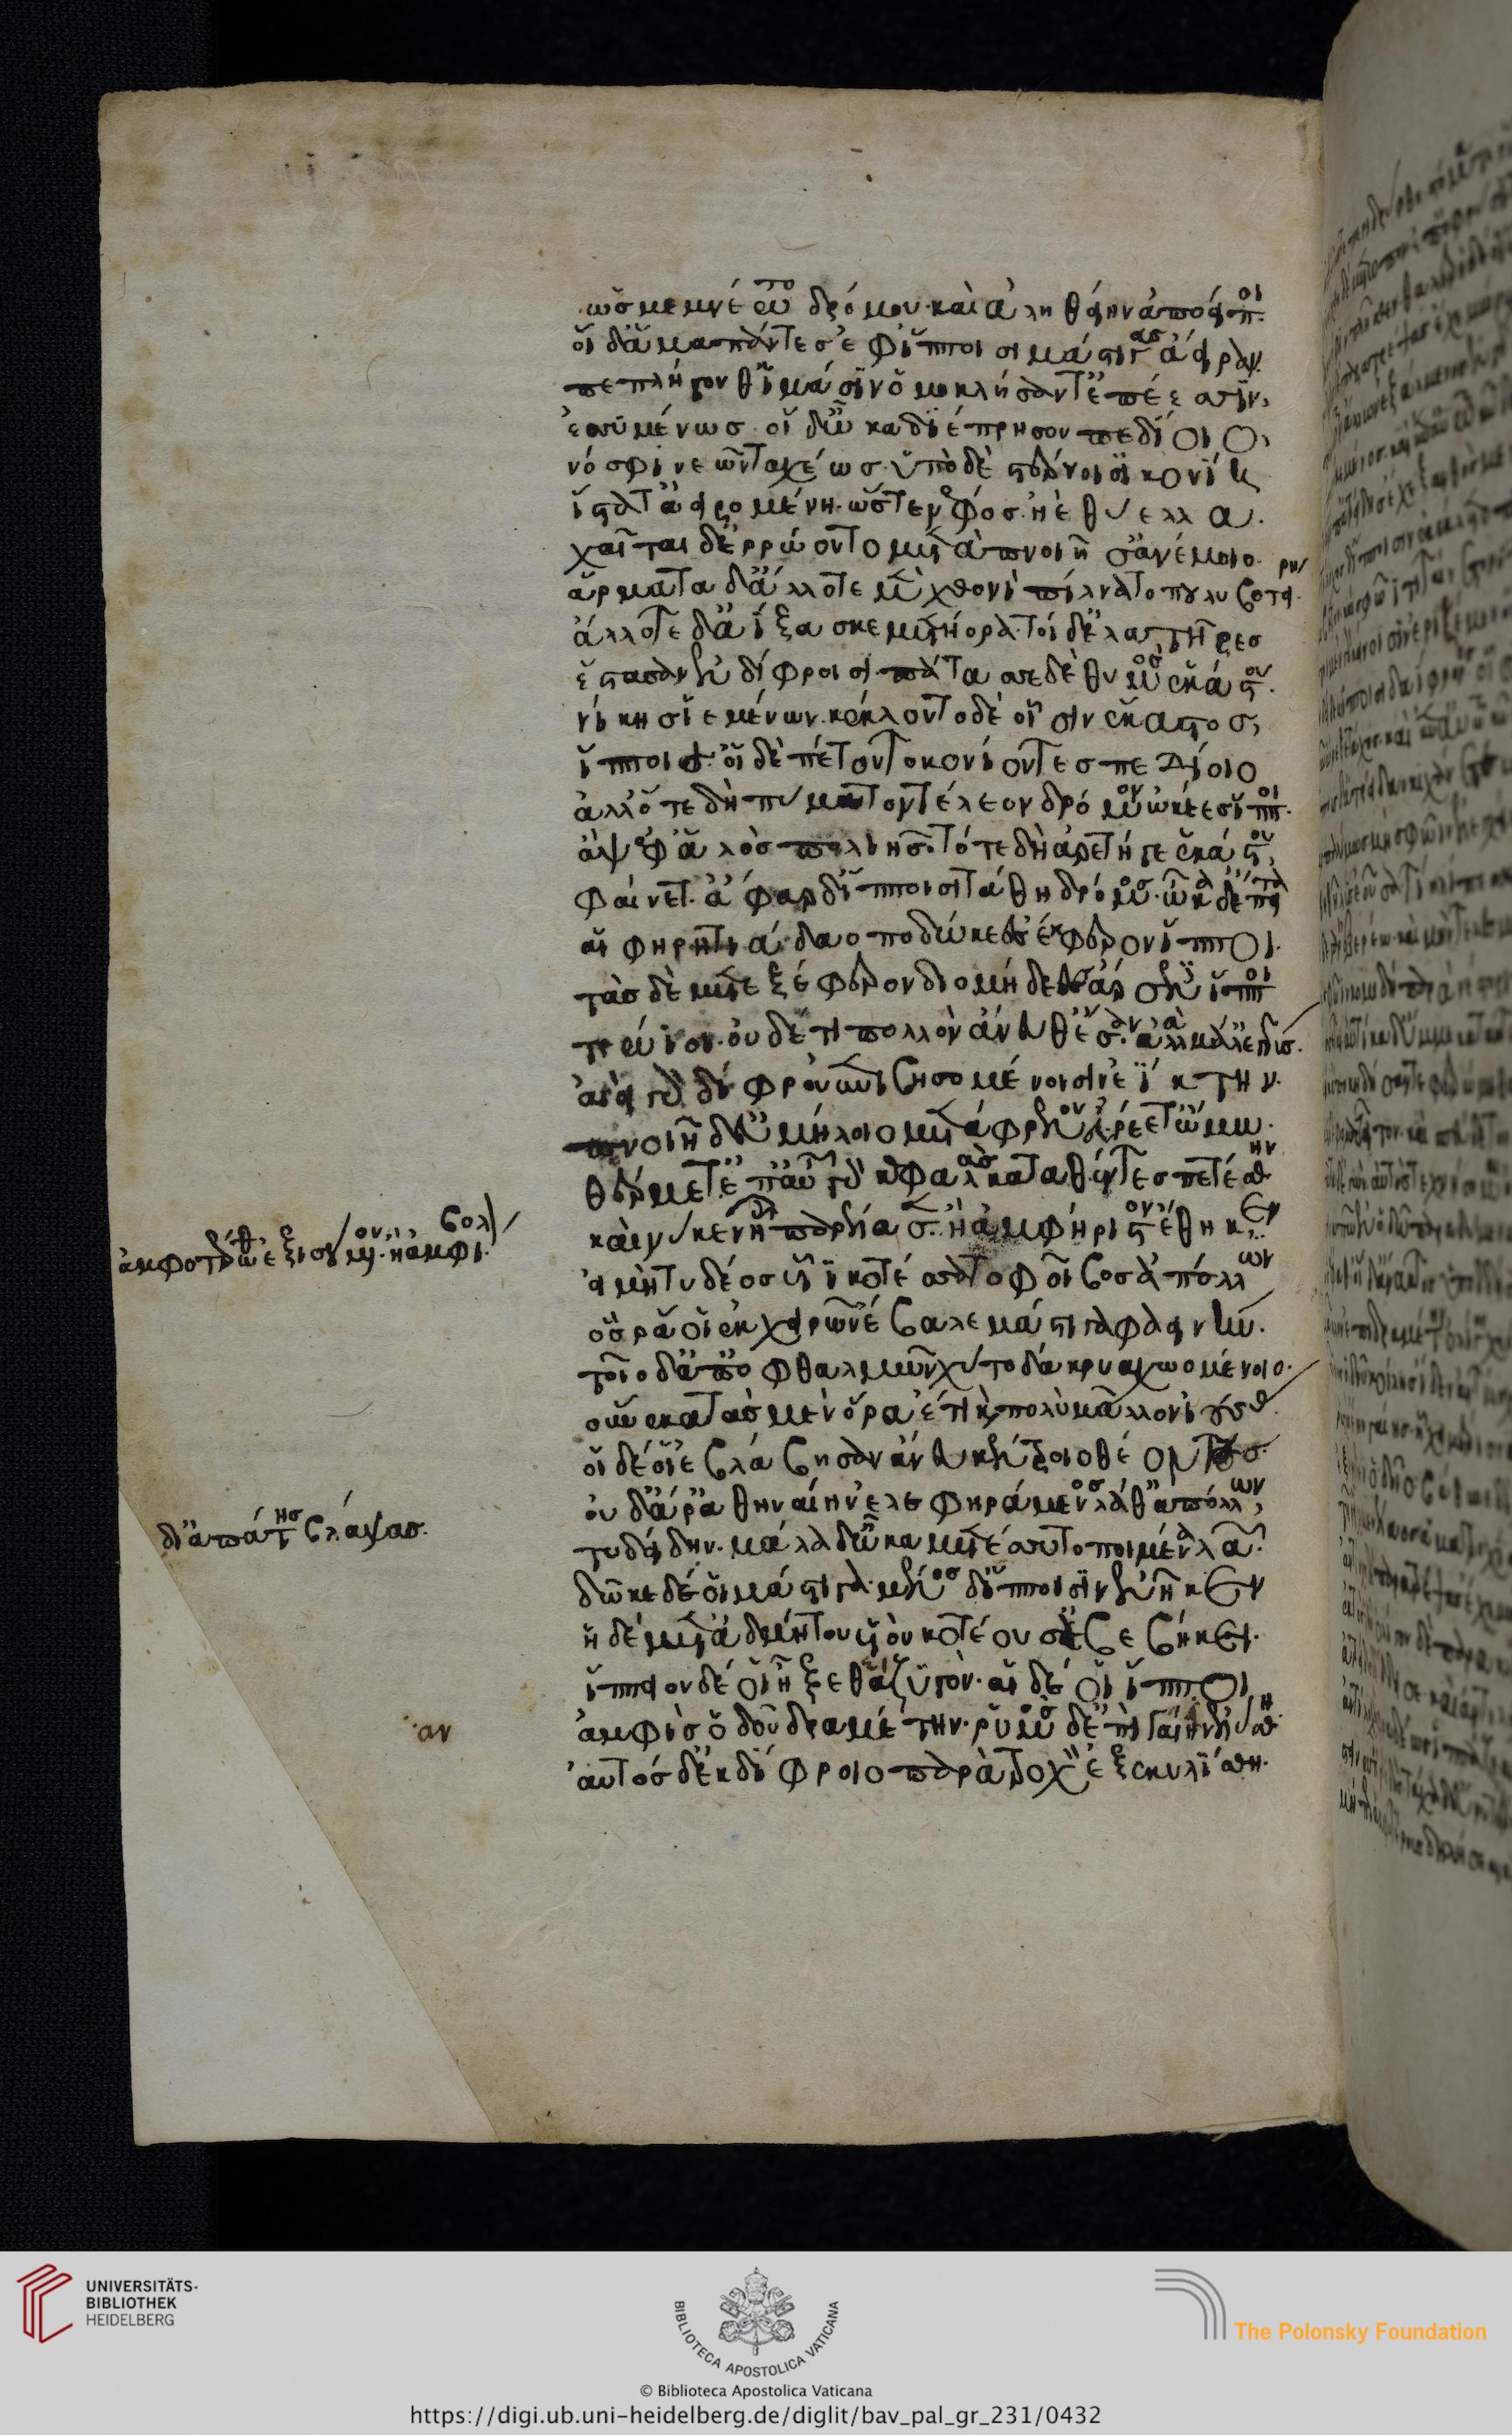 ὡς μεμνέῳτο δρόμου· καὶ ἀληθείην ἀποείποι.
οἱ δ' ἅμα πάντες ἐφ' ἵπποισι μάστιγας ἄειραν.
πέπληγον θ' ἱμάσιν ὁμοκλήσαν τ' ἐπέεσσιν,
ἐσσυμένως· οἱ δ' ὦκα διέπρησον πεδίοιο,
νόσφι νεῶν ταχέως· ὑπὸ δὲ στέρνοισι κονίη
ἵστατ' ἀειρομένη· ὥστε νέφος ἠὲ θύελλα.
χαῖται δ' ἐρρώοντο μετὰ πνοιῆς ἀνέμοιο.
ἅρματα δ' ἄλλοτε μὲν χθονὶ πίλνατο πουλυβοτείρη.
ἄλλοτε δ' ἀΐξασκε μετήορα· τοί δ' ἐλατῆρες
ἕστασαν ἐν δίφροισι· πάτασσε δὲ θυμὸς ἑκάστου.
νίκης ἱεμένων· κέκλοντο δὲ οἷσιν ἕκαστος,
ἵπποισ'· οἱ δὲ πέτοντο κονίοντες πεδίοιο
ἀλλ' ὅτε δὴ πύματον τέλεον δρόμον ὠκέες ἵπποι.
ἂψ ἐφ' ἁλὸς πολιῆς· τότε δὴ ἀρετή γε ἑκάστου,
φαίνετ'· ἄφαρ δ' ἵπποισι τάθη δρόμος· ὦκα δ' ἔπειτα
αἱ φηρητιάδαο ποδώκεες ἔκφερον ἵπποι.
τὰς δὲ μετεξέφερον διομήδεος ἄρσενες ἵπποι
τρώϊοι· οὐδέ τι πολλὸν ἄνευθ' ἔσαν· ἀλλὰ μάλ' ἐγγύς.
ἀιεὶ γὰρ δίφρου ἐπιβησομένοισιν ἐΐκτην.
πνοιῆ δ' εὐμήλοιο μετάφρενον εὐρέε τ' ὤμω.
θέρμετ' ἐπ' αὐτῶ γὰρ κεφαλὰς καταθέντες πετέσθην
καί νύ κεν ἢ παρέλασ'· ἢ ἀμφήριστον ἔθηκεν,
εἰ μὴ τυδέος υἷϊ κοτέσσατο φοῖβος ἀπόλλων
ὅς ῥά οἱ ἐκ χειρῶν ἔβαλε μάστιγα φαεινήν.
τοῖο δ' ἀπ' ὀφθαλμῶν χύτο δάκρυα χωομένοιο.
οὕνεκα τὰς μὲν ὅρα ἔτι καὶ πολὺ μᾶλλον ἰούσας.
οἱ δέ οἱ ἐβλάβησαν ἄνευ κέντροιο θέοντες.
οὐδ' ἄρ' ἀθηναίην ἐλεφηράμενος λάθ' ἀπόλλων,
τυδείδην· μάλα δ' ὦκα μετέσσυτο ποιμένα λαῶν.
δῶκε δέ οἱ μάστιγα· μένος δ' ἵπποισιν ἐνῆκεν
ἡ δὲ μετ' ἀδμήτου υἱὸν κοτέουσ' ἐβεβήκει.
ἵππειον δέ οἱ ἦξε θεὰ ζυγόν· αἱ δέ οἱ ἵπποι
ἀμφὶς ὁδοῦ δραμέτην· ῥυμὸς δ' ἐπὶ γαῖαν ἐλύσθη.
αὐτὸς δ' ἐκ δίφροιο παρὰ τροχὸν ἐξεκυλίσθη.
δι' ἀπάτης βλάψας.
αν
UNIVERSITÄTS-
BIBLIOTHEK
HEIDELBERG
BIBLIOTECA APOSTOLICA VATICANA
The Polonsky Foundation
© Biblioteca Apostolica Vaticana
https://digi.ub.uni-heidelberg.de/diglit/bav_pal_gr_231/0432